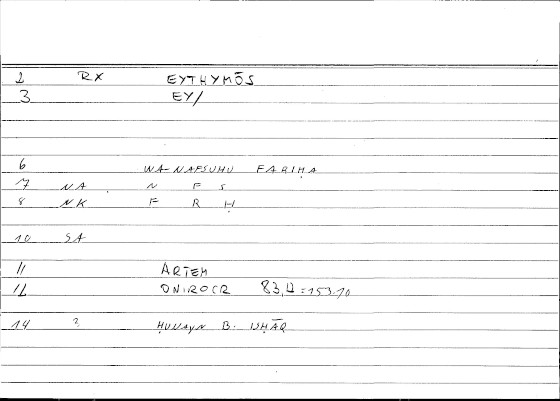 2 RX EYTHYMŌS
3 EY/
6 WA-NAFSUHU FARIḤA
7 NA N F S
8 NK F R Ḥ
10 SA
11 ARTEM
12 ONIROCR 83, = 153.10
14 2 ḤUNAYN B. ISḤĀQ